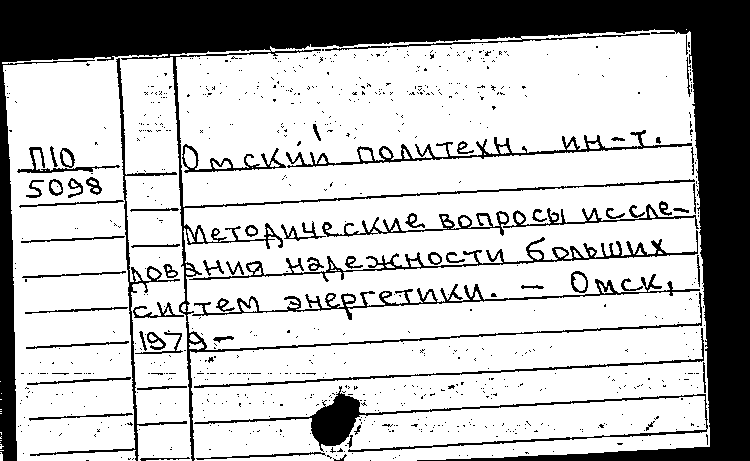 П10
5098
Омский политехн. ин-т.
Методические вопросы иссле-
дования надежности больших
систем энергетики. – Омск,
1979–